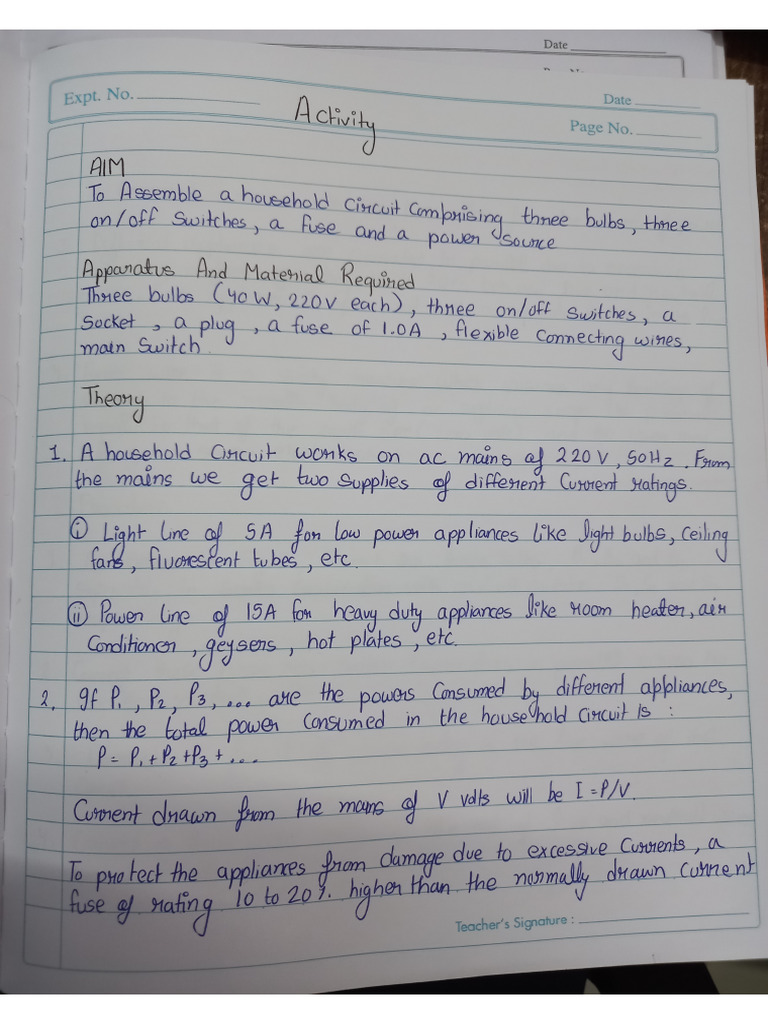 Date
Expt. No.
Date
Activity
Page No.
AIM
To Assemble a household Circuit Comprising three bulbs, three
on/off Switches, a fuse and a power source
Apparatus And Material Required
Three bulbs (40W, 220V each), three on/off switches, a
Socket, a plug, a fuse of 1.0A, flexible Connecting wires,
main Switch.
Theory
1. A household Circuit works on ac mains of 220V, 50Hz. From
the mains we get two supplies of different Current ratings.
(i) Light line of 5A for low power appliances like light bulbs, Ceiling
fans, fluorescent tubes, etc.
(ii) Power line of 15A for heavy duty appliances like room heater, air
Conditioner, geysers, hot plates, etc.
2. If P1, P2, P3, ... are the powers Consumed by different appliances,
then the total power Consumed in the household Circuit is :
P = P1 + P2 + P3 + ...
Current drawn from the mains of V volts will be I = P/V.
To protect the appliances from damage due to excessive Currents, a
fuse of rating 10 to 20% higher than the normally drawn current
Teacher's Signature :